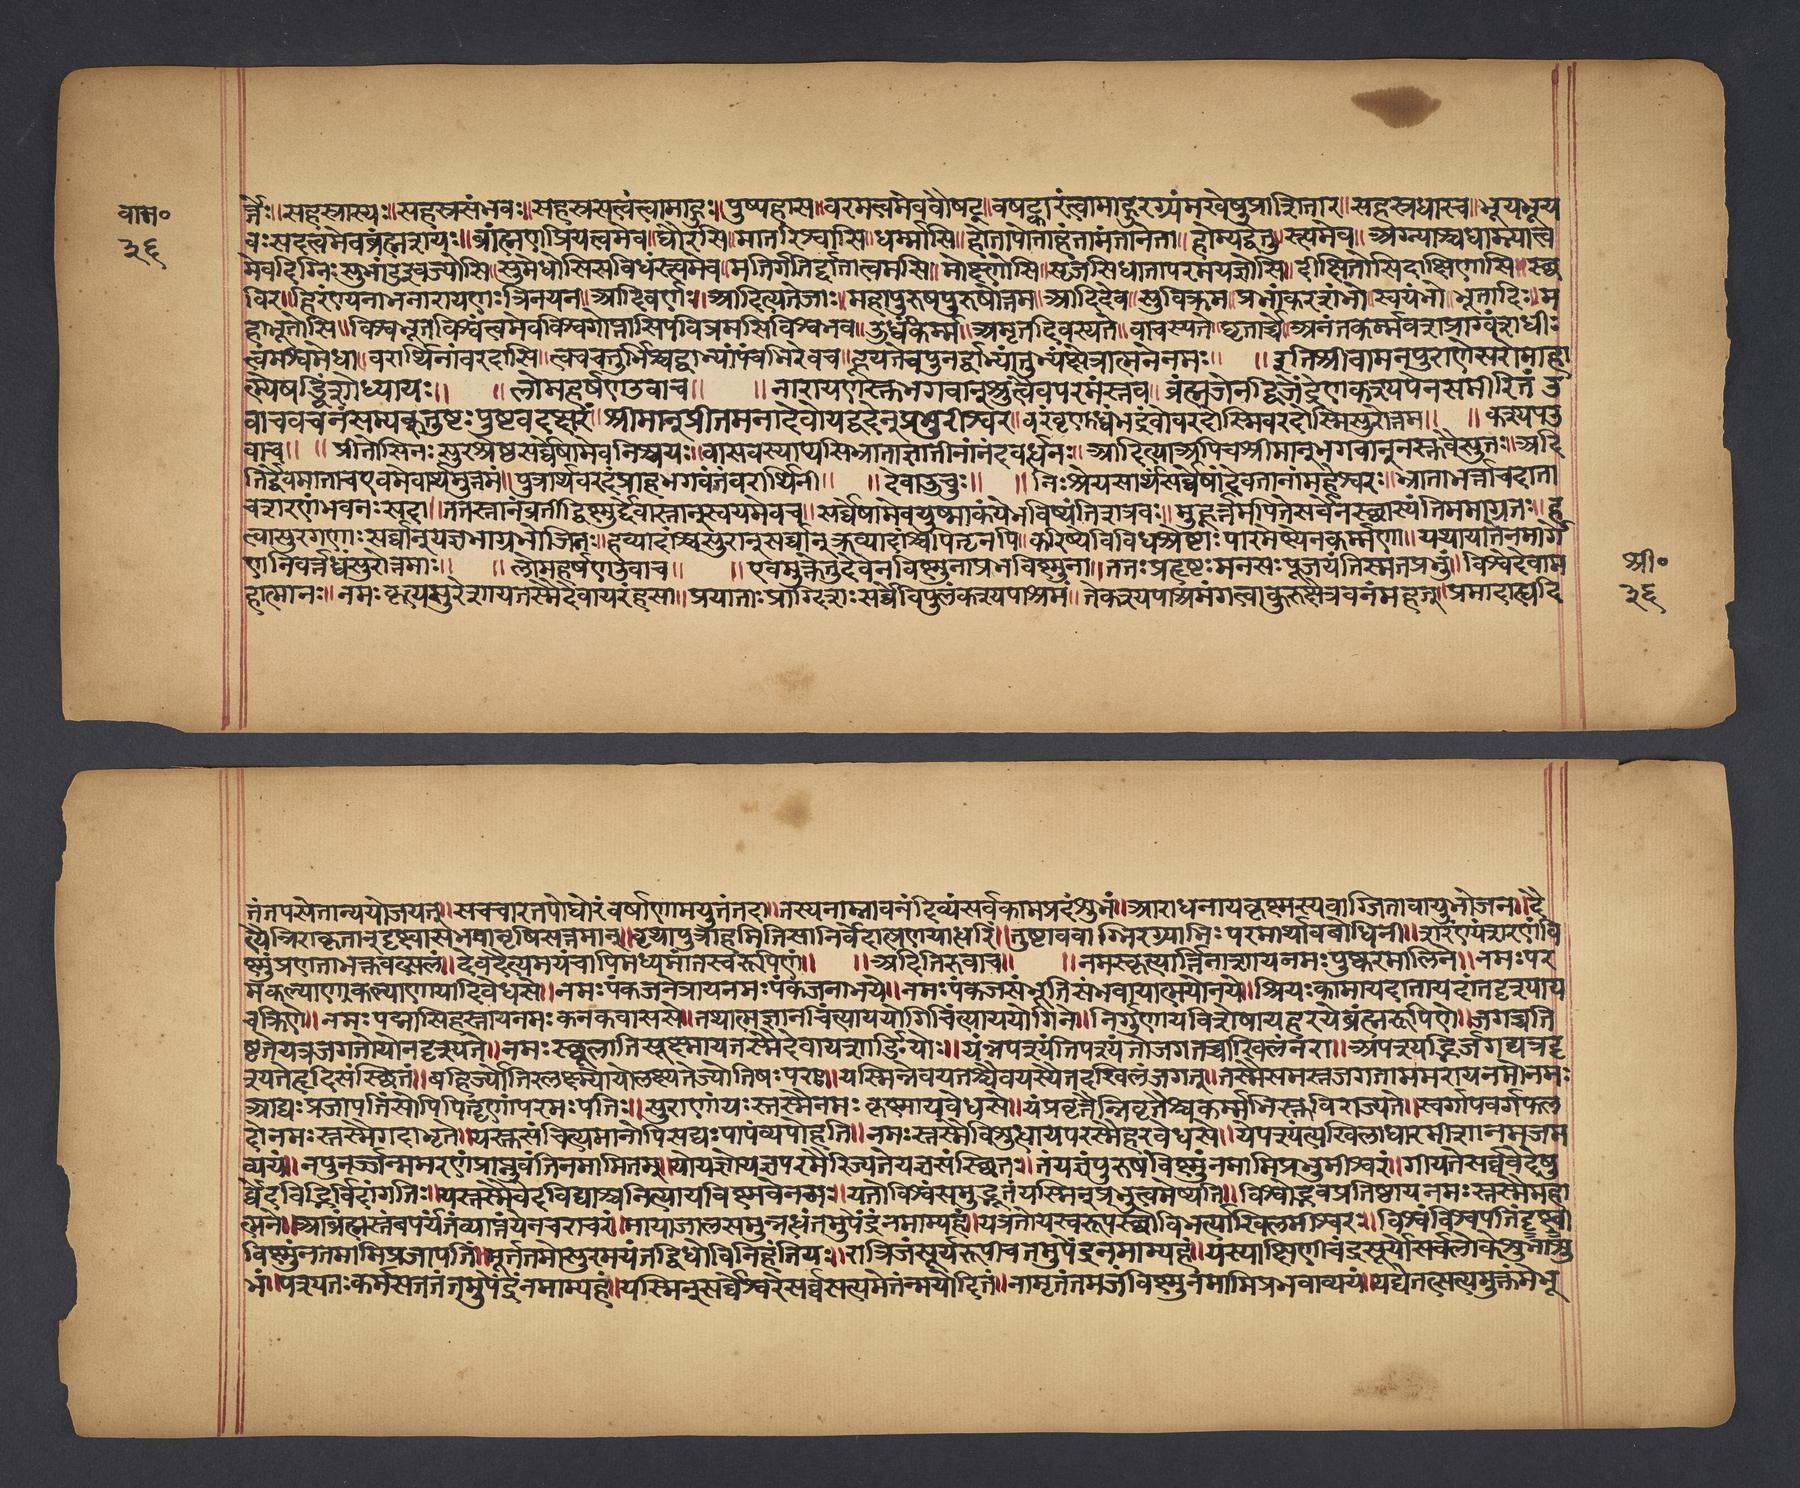 वाम॰
३६
र्त्तैः॥सहस्रास्यः॥सहस्रसंभवः॥सहस्रसत्वंत्वामाहुः॥पुष्पहास॥चरमत्वमेववौषट्॥वषट्कारंत्वामाहुरग्र्यंमखेषुप्राशितार॥सहस्रधारच॥भूयभूय
वःसहत्वमेवब्रह्मशयः॥ब्राह्मणप्रियत्वमेव॥घौरसि॥मातरिश्वासि॥धर्म्मोसि॥होतापोताहंतामंतानेता॥होम्यहेतु॥स्त्वमेव॥अग्न्याश्चधाम्न्यात्व
मेवदिग्भिःसुभांडइज्योसि॥सुमेधोसिसविधंस्त्वमेव॥मतिर्गतिर्द्दातात्वमसि॥मोक्ष्णोसि॥सृजसिधातापरमयज्ञोसि॥दीक्षितोसिदक्षिणासि॥स्थ
विर॥हिरण्यनाभनारायणःत्रिनयन॥आदिवर्ण॥आदित्यतेजाः॥महापुरुषपुरुषोत्तम॥आदिदेव॥सुविक्रम॥प्रभाकरशंभो॥स्वयंभो॥भूतादिः॥म
हाभूतोसि॥विश्वभूतविश्वंत्वमेवविश्वगोप्तासिपवित्रमसिविश्वभव॥उर्ध्वकर्म्म॥अमृतदिवस्पते॥वाचस्पते॥घृतार्च्चे॥अनंतकर्म्मवंशप्राग्वंशधीः
त्वमश्वमेधा॥वरार्थिनांवरदासि॥त्वंचचतुर्भिश्चद्वाभ्यांपंचभिरेवच॥हूयतेचपुनर्द्वाभ्यांतुभ्यंहोत्रात्मनेनमः॥ ॥इतिश्रीवामनपुराणेसरोमाहा
त्म्येषड्विंशोध्यायः॥ ॥लोमहर्षणउवाच॥ ॥नारायणस्तुभगवान्श्रुत्वैवपरमंस्तवं॥ब्रह्मज्ञेनद्विजेंद्रेणकश्यपेनसमीरितं॥उ
वाचवचनंसम्यक्तुष्टःपुष्टपदाक्षरं॥श्रीमान्प्रीतमनादेवोयद्वदेत्प्रभुरीश्वर॥वरंवृणध्वंभद्रंवोवरदोस्मिवरदोस्मिसुरोत्तम॥ ॥कश्यपउ
वाच॥ ॥प्रीतोसिनःसुरश्रेष्ठसर्व्वेषामेवनिश्चयः॥वासवस्याप्यसिभ्राताज्ञातीनांनंदवर्धनः॥आदित्याअपिचश्रीमान्भगवानुनस्तवैसुतः॥अदि
तिर्द्देवमाताचएवमेवार्थमुत्तमं॥पुत्रार्थवरदंप्राहभगवंतंवरार्थिनी॥ ॥देवाउचुः॥ ॥निःश्रेयसार्थंसर्व्वेषांदेवतानांमहेश्वरः॥भ्राताभर्त्ताचदाता
चशरणंभवनःसदा॥ततस्तानब्रवीद्विष्णुर्द्देवास्तानुस्वयमेवच॥सर्व्वेषामेवयुष्माकंयेभविष्यंतिशत्रवः॥मुहूर्त्तमपितेसर्वेनस्थास्यंतिममाग्रतः॥ह
त्वासुरगणाःसर्व्वान्यज्ञभागाग्रभोजिनः॥हव्यादांश्चसुरान्सर्व्वान्कव्यादांश्चपितृनपि॥करिष्येविविधश्रेष्टाःपारमेष्ठ्येनकर्म्मणा॥यथायातेनमार्गे
णनिवर्त्तध्वंसुरोत्तमाः॥ ॥लोमहर्षणउवाच॥ ॥एवमुक्तेतुदेवेनविष्णुनाप्रभविष्णुना॥ततःप्रहृष्टःमनसःपूजयंतिस्मतंप्रभुं॥विश्वेदेवाम
हात्मानः॥नमःकृत्यसुरेशायतस्मैदेवायरंहसा॥प्रयाताःप्राग्दिशःसर्व्वेविपुलंकश्यपाश्रमं॥तेकश्यपाश्रमंगत्वाकुरुक्षेत्रवनंमहत्॥प्रमादाह्यदि
श्री॰
३६
तंतपसेतान्ययोजयत्॥सचचारतपोघोरंवर्षाणामयुतंतदा॥तस्यनाम्नावनंदिव्यंसर्वकामप्रदंशुभं॥आराधनायकृष्णस्यवाग्जितावायुभोजन॥दै
त्यैर्निराकृतान्दृष्ट्वासभवानृषिसत्तमान्॥वृथापुत्राहमितिसानिर्वेदात्प्रणयाद्धरिं॥तुष्टावववाग्भिरग्र्याभिःपरमार्थावबोधिनी॥शरण्यंशरणंवि
ष्णुंप्रणताभक्तवत्सलं॥देवदैत्यमयंचापिमध्यमांतस्वरूपिणं॥ ॥अदितिरुवाच॥ ॥नमस्कृत्यार्त्तिनाशायनमःपुष्करमालिने॥नमःपर
मकल्याणकल्याणायादिवेधसे॥नमःपंकजनेत्रायनमःपंकजनाभये॥नमःपंकजसंभूतिसंभवायात्मयोनये॥श्रियःकामायदातायदांतदृश्याय
चक्रिणे॥नमःपद्मासिहस्तायनमःकनकवाससे॥तथात्मज्ञानचिंत्याययोगिचिंत्याययोगिने॥निर्गुणायविशेषायहरयेब्रह्मरूपिणे॥जगच्चति
ष्ठतेयत्रजगतोयोनदृश्यते॥नमःस्थूलातिसूक्ष्मायतस्मैदेवायशार्ङ्गिणे॥यंनपश्यंतिपश्यंतोजगतच्चाखिलंनरा॥अपश्यद्भिर्जगद्यत्रदृ
श्यतेहृदिसंस्थितं॥बहिर्ज्योतिरलक्ष्म्यायोलक्ष्यतेज्योतिषःपरः॥यस्मिन्नेवयतश्चैवयस्यैतदखिलंजगत्॥तस्मैसमस्तजगताममरायनमोनमः
आद्यःप्रजापतिंसोपिपितॄणांपरमःपतिः॥सुराणांयःस्तस्मैनमःकृष्णायवेधसे॥यंप्रवृत्तैर्निवृत्तैश्चकर्म्मभिस्तविराज्यते॥स्वर्गापवर्गफल
दोनमःस्तस्मैगदाभृते॥यस्तसंचिंत्यमानोपिसद्यःपापंव्यपोहति॥नमःस्तस्मैविशुद्धायपरस्मैहरवेधसे॥येपश्यंत्यखिलाधारमीशानमजम
व्ययं॥नपुनर्ज्जन्ममरणंप्राप्नुवंतिनमामितम्॥योयज्ञोयज्ञपरमैरिज्यतेयज्ञसंस्थितः॥तंयज्ञंपुरुषंविष्णुंनमामिप्रभुमीश्वरं॥गीयतेसर्व्ववेदेषु
र्व्वेदविद्भिर्विदांगतिः॥यस्तस्मैवेदविद्याश्चनित्यायविष्णवेनमः॥यतोविश्वंसमुद्भूतंयस्मिन्प्रभुत्वमेष्यति॥विश्वोद्भवप्रतिष्ठायनमःस्तस्मैमहा
त्मने॥आब्रह्मस्तंबपर्यंतंव्याप्तंयेनचराचरं॥मायाजालसमुन्नद्धंतमुपेंद्रंनमाम्यहं॥यत्रतोयस्वरूपस्थोबिभर्त्यखिलमीश्वरः॥विश्वंविश्वपतिंदृष्ट्वा
विष्णुंनतमामिप्रजापतिं॥मूर्तंतमोसुरमयंतद्विधोविनिहंतियः॥रात्रिजंसूर्यरूपीचतमुपेंद्रनमाम्यहं॥यस्याक्षिणीचंद्रसूर्यौसर्वलोकेशुभाशु
भं॥पश्यतःकर्मसततंतमुपेंद्रंनमाम्यहं॥यस्मिन्सर्व्वेश्वरेसर्व्वंसत्यमेतन्मयोदितं॥नामृतंतमजंविष्णुंनमामिप्रभवाव्ययं॥यद्येतत्सत्यमुक्तंमेभू